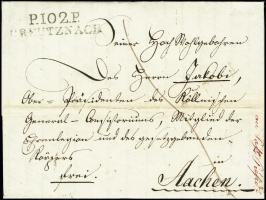 P.102.P.
CREUTZNACH
Seiner Hoch Wohlgebohren
Des Herrn Jakobi,
Ober-Präsidenten des Köllnischen
General-Consistoriums, Mitglied der
Ehrenlegion und des gesetzgebenden
Körpers
frei.
in
Aachen.